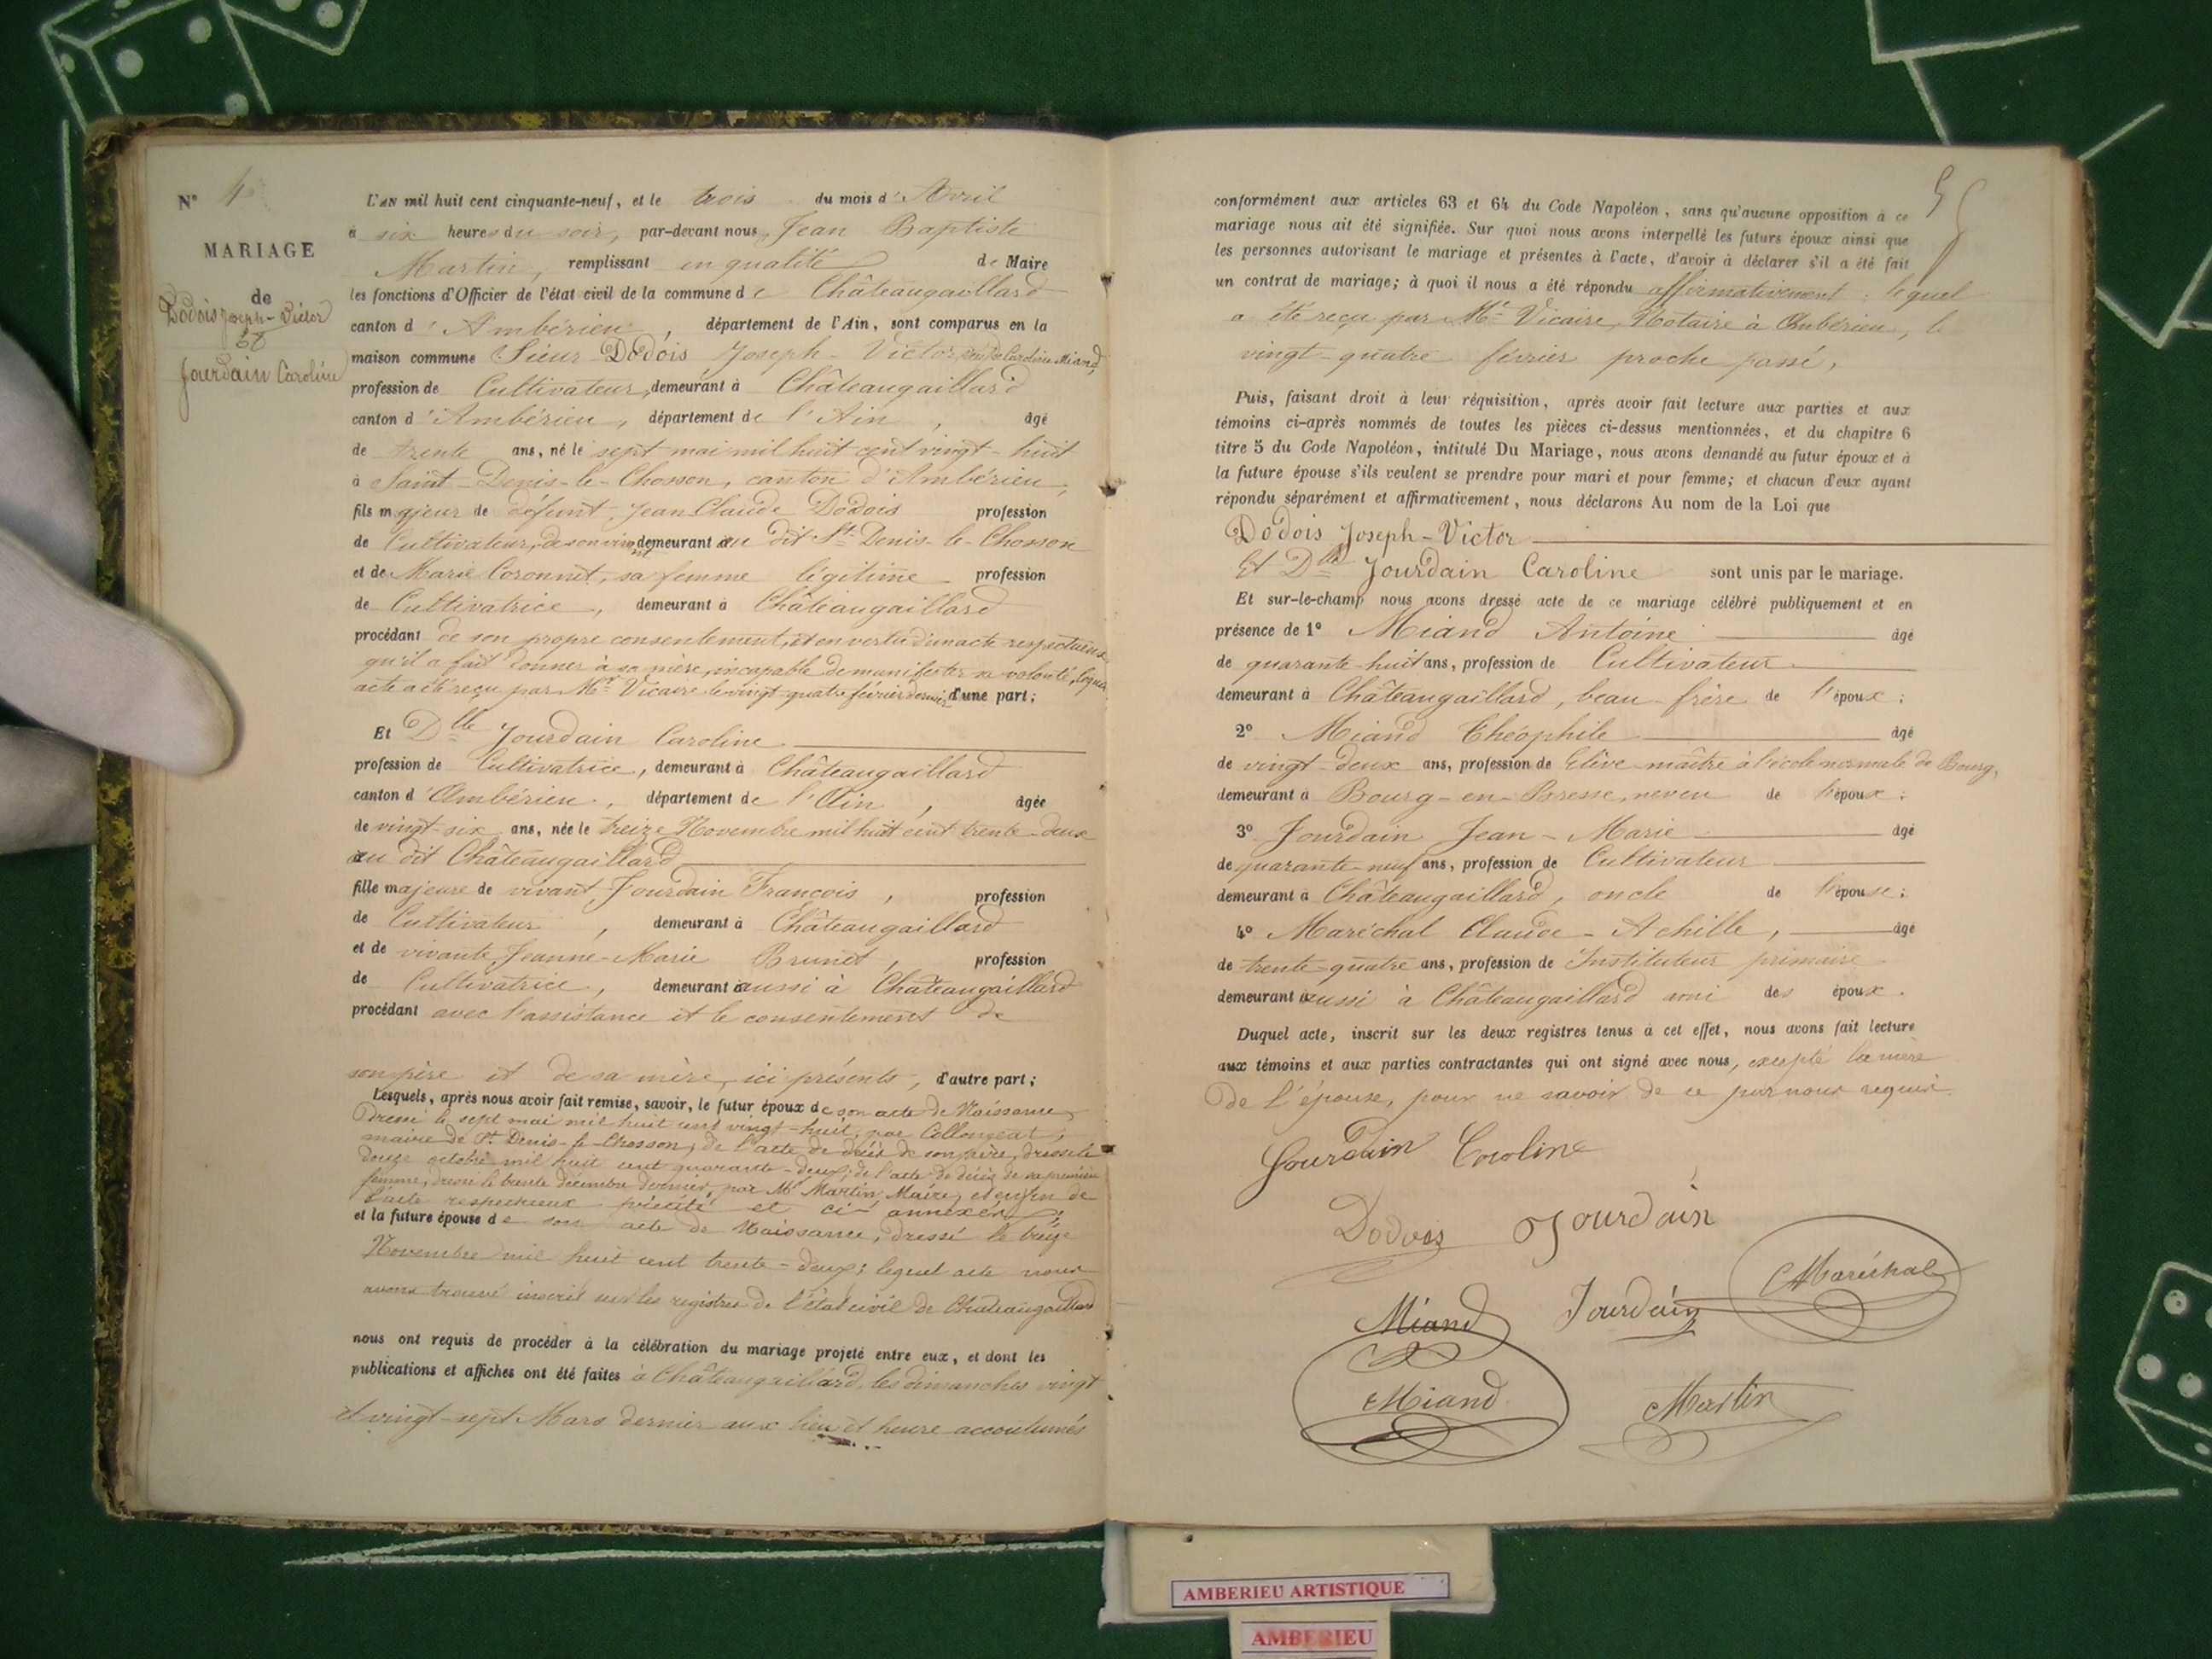 N° 4
MARIAGE
de
Dodois Joseph-Victor
et
Jourdain Caroline
L'AN mil huit cent cinquante-neuf, et le trois du mois d'Avril
à six heures du soir, par-devant nous, Jean Baptiste
Martin, remplissant en qualité de Maire
les fonctions d'Officier de l'état civil de la commune de Châteaugaillard
canton d'Ambérieu, département de l'Ain, sont comparus en la
maison commune Sieur Dodois Joseph-Victor, veuf de Caroline Miand,
profession de Cultivateur, demeurant à Châteaugaillard
canton d'Ambérieu, département de l'Ain, âgé
de trente ans, né le sept mai mil huit cent vingt-huit
à Saint-Denis-le-Chosson, canton d'Ambérieu,
fils majeur de défunt Jean-Claude Dodois profession
de Cultivateur, de son vivant demeurant au dit St-Denis-le-Chosson
et de Marie Coronnet, sa femme légitime profession
de Cultivatrice, demeurant à Châteaugaillard
procédant de son propre consentement, et en vertu d'un acte respectueux
qu'il a fait donner à sa mère, incapable de manifester sa volonté, lequel
acte a été reçu par Me Vicaire le vingt-quatre février dernier d'une part;
Et Dlle Jourdain Caroline
profession de Cultivatrice, demeurant à Châteaugaillard
canton d'Ambérieu, département de l'Ain, âgée
de vingt-six ans, née le treize Novembre mil huit cent trente-deux
au dit Châteaugaillard
fille majeure de vivant Jourdain François, profession
de Cultivateur, demeurant à Châteaugaillard
et de vivante Jeanne-Marie Brunet, profession
de Cultivatrice, demeurant aussi à Châteaugaillard
procédant avec l'assistance et le consentement de
son père et de sa mère, ici présents, d'autre part;
Lesquels, après nous avoir fait remise, savoir, le futur époux de son acte de Naissance,
dressé le sept mai mil huit cent vingt-huit, par
maire de St Denis-le-Chosson; de l'acte de décès de son père, dressé le
douze octobre mil huit cent quarante-deux; de l'acte de décès de sa première
femme, dressé le trente décembre dernier, par Mr Martin Maire, et enfin de
l'acte respectueux précité et ci-annexé;
et la future épouse de son acte de Naissance, dressé le treize
Novembre mil huit cent trente-deux; lequel acte nous
avons trouvé inscrit sur les registres de l'état civil de Châteaugaillard
nous ont requis de procéder à la célébration du mariage projeté entre eux, et dont les
publications et affiches ont été faites à Châteaugaillard, les dimanches vingt
et vingt-sept Mars dernier aux lieu et heure accoutumés
conformément aux articles 63 et 64 du Code Napoléon, sans qu'aucune opposition à ce
mariage nous ait été signifiée. Sur quoi nous avons interpellé les futurs époux ainsi que
les personnes autorisant le mariage et présentes à l'acte, d'avoir à déclarer s'il a été fait
un contrat de mariage; à quoi il nous a été répondu affirmativement: lequel
a été reçu par Me Vicaire, Notaire à Ambérieu, le
vingt-quatre février proche passé,
Puis, faisant droit à leur réquisition, après avoir fait lecture aux parties et aux
témoins ci-après nommés de toutes les pièces ci-dessus mentionnées, et du chapitre 6
titre 5 du Code Napoléon, intitulé Du Mariage, nous avons demandé au futur époux et à
la future épouse s'ils veulent se prendre pour mari et pour femme; et chacun d'eux ayant
répondu séparément et affirmativement, nous déclarons Au nom de la Loi que
Dodois Joseph-Victor
Et Dlle Jourdain Caroline sont unis par le mariage.
Et sur-le-champ nous avons dressé acte de ce mariage célébré publiquement et en
présence de 1° Miand Antoine âgé
de quarante-huit ans, profession de Cultivateur
demeurant à Châteaugaillard, beau-frère de l'époux;
2° Miand Théophile âgé
de vingt-deux ans, profession de Elève-maître à l'école normale de Bourg,
demeurant à Bourg-en-Bresse, neveu de l'époux;
3° Jourdain Jean-Marie âgé
de quarante-neuf ans, profession de Cultivateur
demeurant à Châteaugaillard, oncle de l'épouse;
4° Maréchal Claude-Achille, âgé
de trente-quatre ans, profession de Instituteur primaire
demeurant aussi à Châteaugaillard ami des époux.
Duquel acte, inscrit sur les deux registres tenus à cet effet, nous avons fait lecture
aux témoins et aux parties contractantes qui ont signé avec nous, excepté la mère
de l'épouse, pour ne savoir de ce par nous requise.
Jourdain Caroline
Dodois Jourdain
Maréchal
Miand Jourdain
Miand Martin
AMBERIEU ARTISTIQUE
AMBERIEU